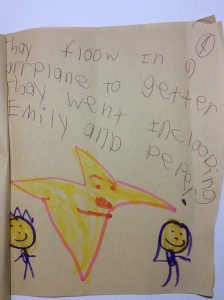 8
Thay floow in a
airplane to getter
Thay went inclooding
Emily and peper.